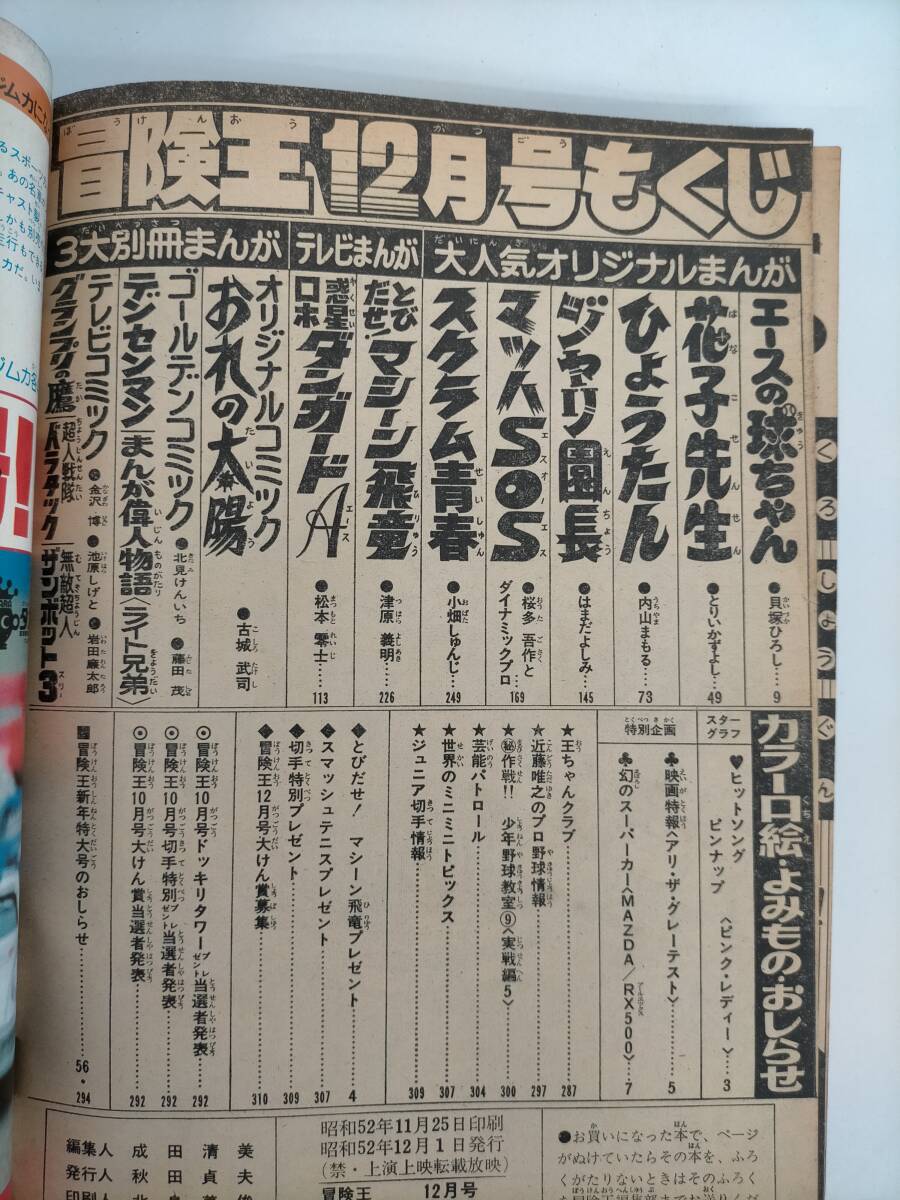 冒険王12月号もくじ
大人気オリジナルまんが
エースの球ちゃん ●貝塚ひろし……9
花子先生 ●とりいかずよし……49
ひょうたん ●内山まもる……73
ジャリ園長 ●はまだよしみ……145
マッハSOS ●桜多吾作とダイナミックプロ……169
スクラム青春 ●小畑しゅんじ……249
テレビまんが
とびだせ!マシーン飛竜 ●津原義明……226
惑星ロボ ダンガードA ●松本零士……113
3大別冊まんが
オリジナルコミック
おれの太陽 ●古城武司
ゴールデンコミック ●北見けんいち ●藤田茂
デンセンマン/まんが偉人物語〈ライト兄弟〉
テレビコミック ●金沢博 ●池原しげと ●岩田廉太郎
グランプリの鷹/超人戦隊バラタック/無敵超人ザンボット3
カラー口絵・よみもの・おしらせ
スターグラフ
♥ヒットソングピンナップ〈ピンク・レディー〉…3
特別企画
♣映画特報〈アリ・ザ・グレーテスト〉……5
♣幻のスーパーカー〈MAZDA/RX500〉……7
★王ちゃんクラブ……287
★近藤唯之のプロ野球情報……297
★㊙作戦!!少年野球教室⑨〈実戦編5〉……300
★芸能パトロール……304
★世界のミニミニトピックス……307
★ジュニア切手情報……309
◆とびだせ!マシーン飛竜プレゼント……4
◆スマッシュテニスプレゼント……307
◆切手特別プレゼント……309
◆冒険王12月号大けん賞募集……310
◎冒険王10月号ドッキリタワープレゼント当選者発表……292
◎冒険王10月号切手特別プレゼント当選者発表……292
◎冒険王10月号大けん賞当選者発表……292
冒険王新年特大号のおしらせ……56・294
●お買いになった本で、ページ
がぬけていたらその本を、ふろ
くがたりないときはそのふろく
昭和52年11月25日印刷
昭和52年12月1日発行
(禁・上演上映転載放映)
冒険王 12月号
編集人 成田清美
発行人 秋田貞夫
くろしょうぐん